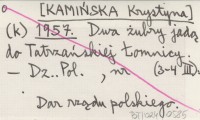 [KAMIŃSKA Krystyna]
(k) 1957. Dwa żubry jadą
do Tatrzańskiej Łomnicy.
— Dz. Pol., nr (3-4 III).
Dar rządu polskiego.